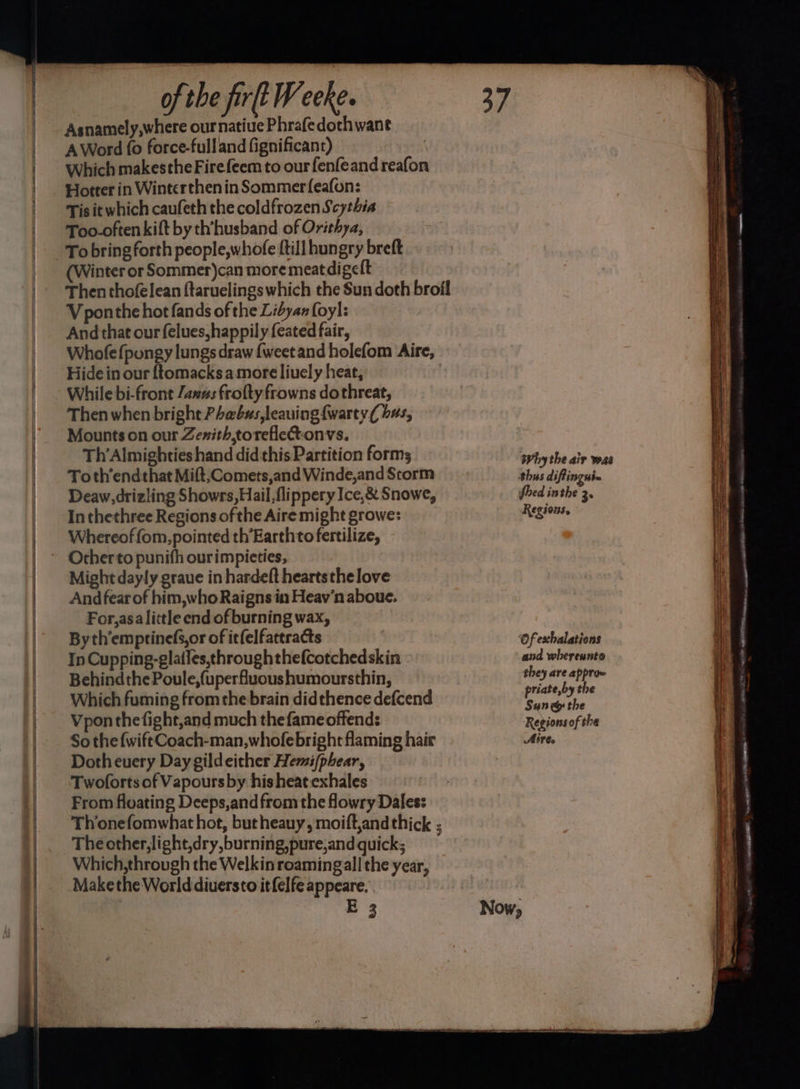 of the firſt Weeke. 37
Asnamely,where our natiue Phraſe doth want
A Word ſo force-full and ſignificant)
Which makes the Fire ſeem to our ſenſe and reaſon
Hotter in Winter then in Sommer ſeaſon:
Tis it which cauſeth the cold frozen Scythia
Too-often kiſt by th'husband of Orithya,
To bring forth people,whoſe ſtill hungry breſt
(Winter or Sommer)can more meat digeſt
Then thoſe lean ſtaruelings which the Sun doth broil
Vpon the hot ſands of the Libyan ſoyl:
And that our ſelues,happily ſeated fair,
Whoſe ſpongy lungs draw ſweet and holeſom Aire,
Hide in our ſtomacks a more liuely heat,
While bi-front Ianus froſty frowns do threat,
Then when bright Phœbus,leauing ſwarty Chus,
Mounts on our Zenith,to reflect on vs.
Th'Almighties hand did this Partition form;
To th'end that Miſt,Comets,and Winde,and Storm
Deaw,drizling Showrs,Hail,ſlippery Ice,& Snowe,
In the three Regions of the Aire might growe:
Whereof ſom,pointed th'Earth to fertilize,
Other to puniſh our impieties,
Might dayly graue in hardeſt hearts the love
And fear of him,who Raigns in Heav'n aboue.
For,as a little end of burning wax,
By th'emptineſs,or of it ſelf attracts
In Cupping-glaſſes,through the ſcotched skin
Behind the Poule,ſuperfluous humours thin,
Which fuming from the brain did thence deſcend
Vpon the ſight,and much the ſame offend:
So the ſwift Coach-man,whoſe bright flaming hair
Doth euery Day gild either Hemiſphear,
Two ſorts of Vapours by his heat exhales
From floating Deeps,and from the flowry Dales:
Th'one ſomwhat hot, but heauy, moiſt,and thick;
The other,light,dry,burning,pure,and quick;
Which,through the Welkin roaming all the year,
Make the World diuers to it ſelfe appeare.
E 3 Now,
Why the air was
thus diſtingui-
ſhed in the 3.
Regions.
Of exhalations
and whereunto
they are appro-
priate,by the
Sun & the
Regions of the
Aire.